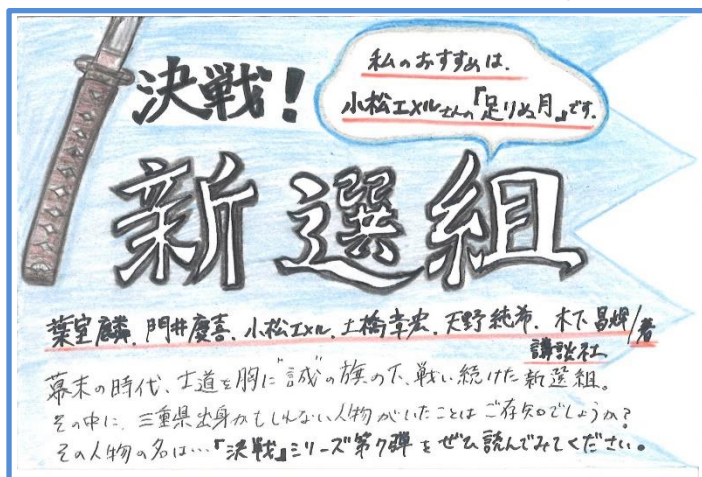 決戦!
私のおすすめは、
小松エメルさんの『足りぬ月』です。
新選組
葉室麟、門井慶喜、小松エメル、土橋章宏、天野純希、木下昌輝/著
講談社
幕末の時代、士道を胸に"誠"の旗の下、戦い続けた新選組。
その中に、三重県出身かもしれない人物がいたことはご存知でしょうか?
その人物の名は…『決戦』シリーズ第7弾をぜひ読んでみてください。